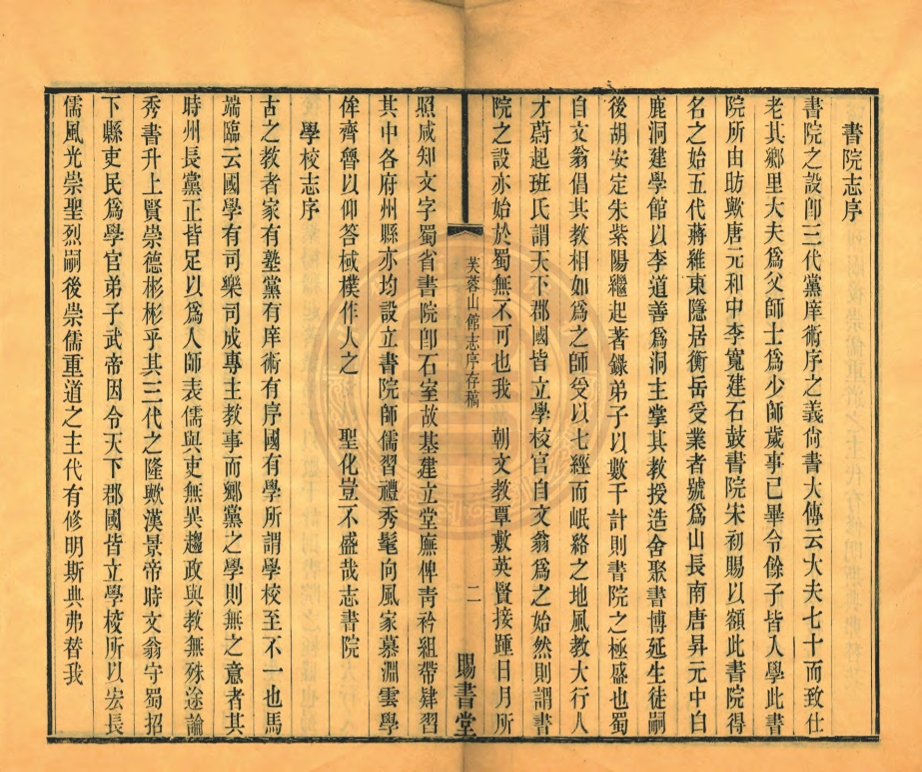 書院志序
書院之設卽三代黨庠術序之義尙書大傳云大夫七十而致仕
老其鄉里大夫爲父師士爲少師歲事已畢令餘子皆入學此書
院所由昉歟唐元和中李寬建石鼓書院宋初賜以額此書院得
名之始五代蔣維東隱居衡岳受業者號爲山長南唐昇元中白
鹿洞建學館以李道善爲洞主掌其教授造舍聚書博延生徒嗣
後胡安定朱紫陽繼起著錄弟子以數千計則書院之極盛也蜀
自文翁倡其教相如爲之師受以七經而岷絡之地風教大行人
才蔚起班氏謂天下郡國皆立學校官自文翁爲之始然則謂書
院之設亦始於蜀無不可也我 朝文教覃敷英賢接踵日月所
芙蓉山館志序存稿
二
賜書堂
照咸知文字蜀省書院卽石室故基建立堂廡俾靑衿組帶肄習
其中各府州縣亦均設立書院師儒習禮秀髦向風家慕淵雲學
侔齊魯以仰答棫樸作人之 聖化豈不盛哉志書院
學校志序
古之教者家有塾黨有庠術有序國有學所謂學校至不一也馬
端臨云國學有司樂司成專主教事而鄉黨之學則無之意者其
時州長黨正皆足以爲人師表儒與吏無異趨政與教無殊途論
秀書升上賢崇德彬彬乎其三代之隆歟漢景帝時文翁守蜀招
下縣吏民爲學官弟子武帝因令天下郡國皆立學校所以宏長
儒風光崇聖烈嗣後崇儒重道之主代有修明斯典弗替我